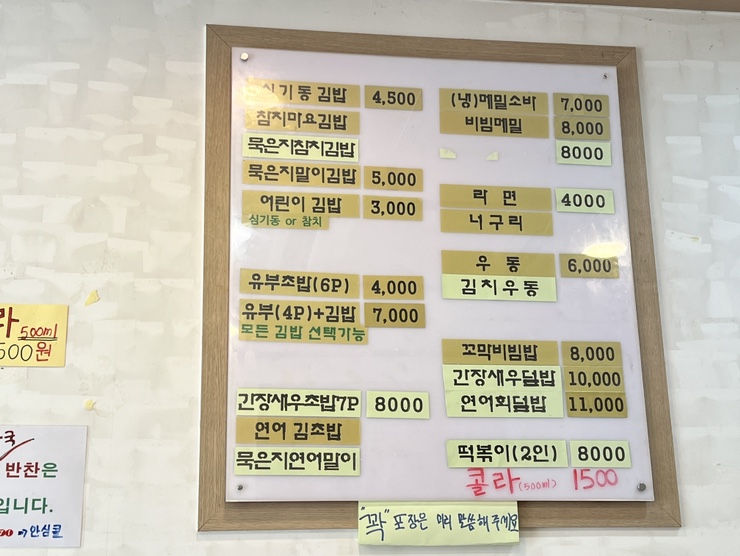 심기동김밥 4,500
참치마요김밥
묵은지참치김밥
묵은지말이김밥 5,000
어린이 김밥 3,000
심기동 or 참치
유부초밥(6P) 4,000
유부(4P)+김밥 7,000
모든 김밥 선택가능
간장새우초밥7P 8000
연어 김초밥
묵은지연어말이
(냉)메밀소바 7,000
비빔메밀 8,000
8000
라 면 4000
너구리
우 동 6,000
김치우동
꼬막비빔밥 8,000
간장새우덮밥 10,000
연어회덮밥 11,000
떡볶이(2인) 8000
콜라(500ml) 1500
"꽉" 포장은 미리 말씀해 주세요
라 500ml
500원
국
반찬은
입니다.
→ 안심콜